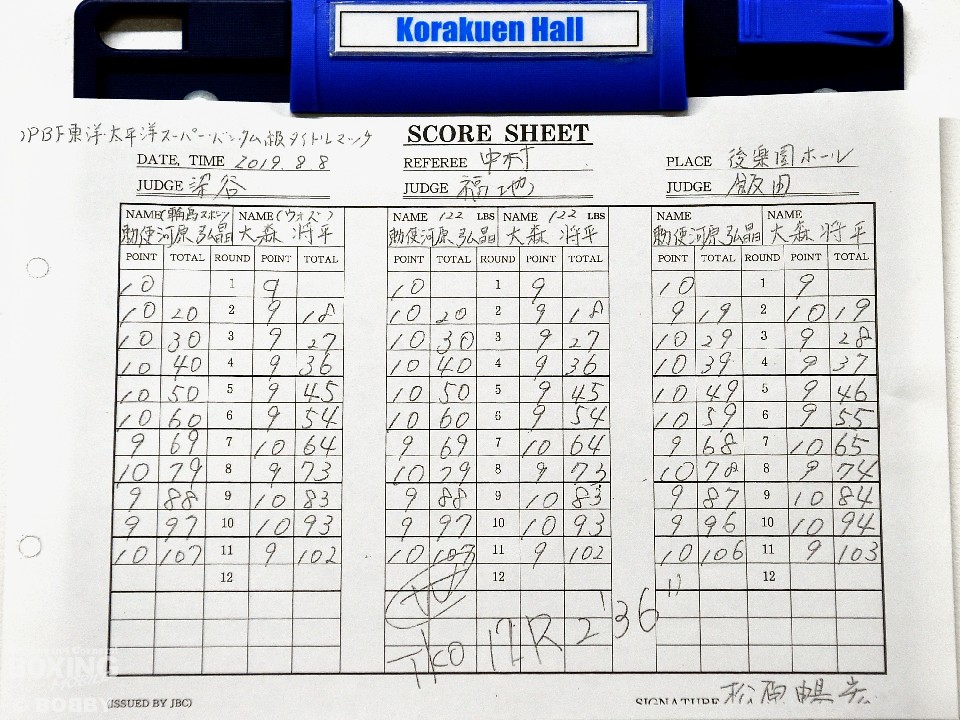 Korakuen Hall
OPBF東洋太平洋スーパーバンタム級タイトルマッチ
SCORE SHEET
DATE, TIME 2019.8.8 REFEREE 中村 PLACE 後楽園ホール
JUDGE 深谷 JUDGE 福地 JUDGE 飯田
NAME(輪島スポーツ) NAME(ウォズ) NAME 122 LBS NAME 122 LBS NAME NAME
勅使河原弘晶 大森 将平 勅使河原弘晶 大森 将平 勅使河原弘晶 大森 将平
POINT TOTAL ROUND POINT TOTAL POINT TOTAL ROUND POINT TOTAL POINT TOTAL ROUND POINT TOTAL
10 1 9 10 1 9 10 1 9
10 20 2 9 18 10 20 2 9 18 9 19 2 10 19
10 30 3 9 27 10 30 3 9 27 10 29 3 9 28
10 40 4 9 36 10 40 4 9 36 10 39 4 9 37
10 50 5 9 45 10 50 5 9 45 10 49 5 9 46
10 60 6 9 54 10 60 6 9 54 10 59 6 9 55
9 69 7 10 64 9 69 7 10 64 9 68 7 10 65
10 79 8 9 73 10 79 8 9 73 10 78 8 9 74
9 88 9 10 83 9 88 9 10 83 9 87 9 10 84
9 97 10 10 93 9 97 10 10 93 9 96 10 10 94
10 107 11 9 102 10 107 11 9 102 10 106 11 9 103
12 12 12
W
TKO 12R 2'36"
BOXING
BOBBY
(ISSUED BY JBC) SIGNATURE